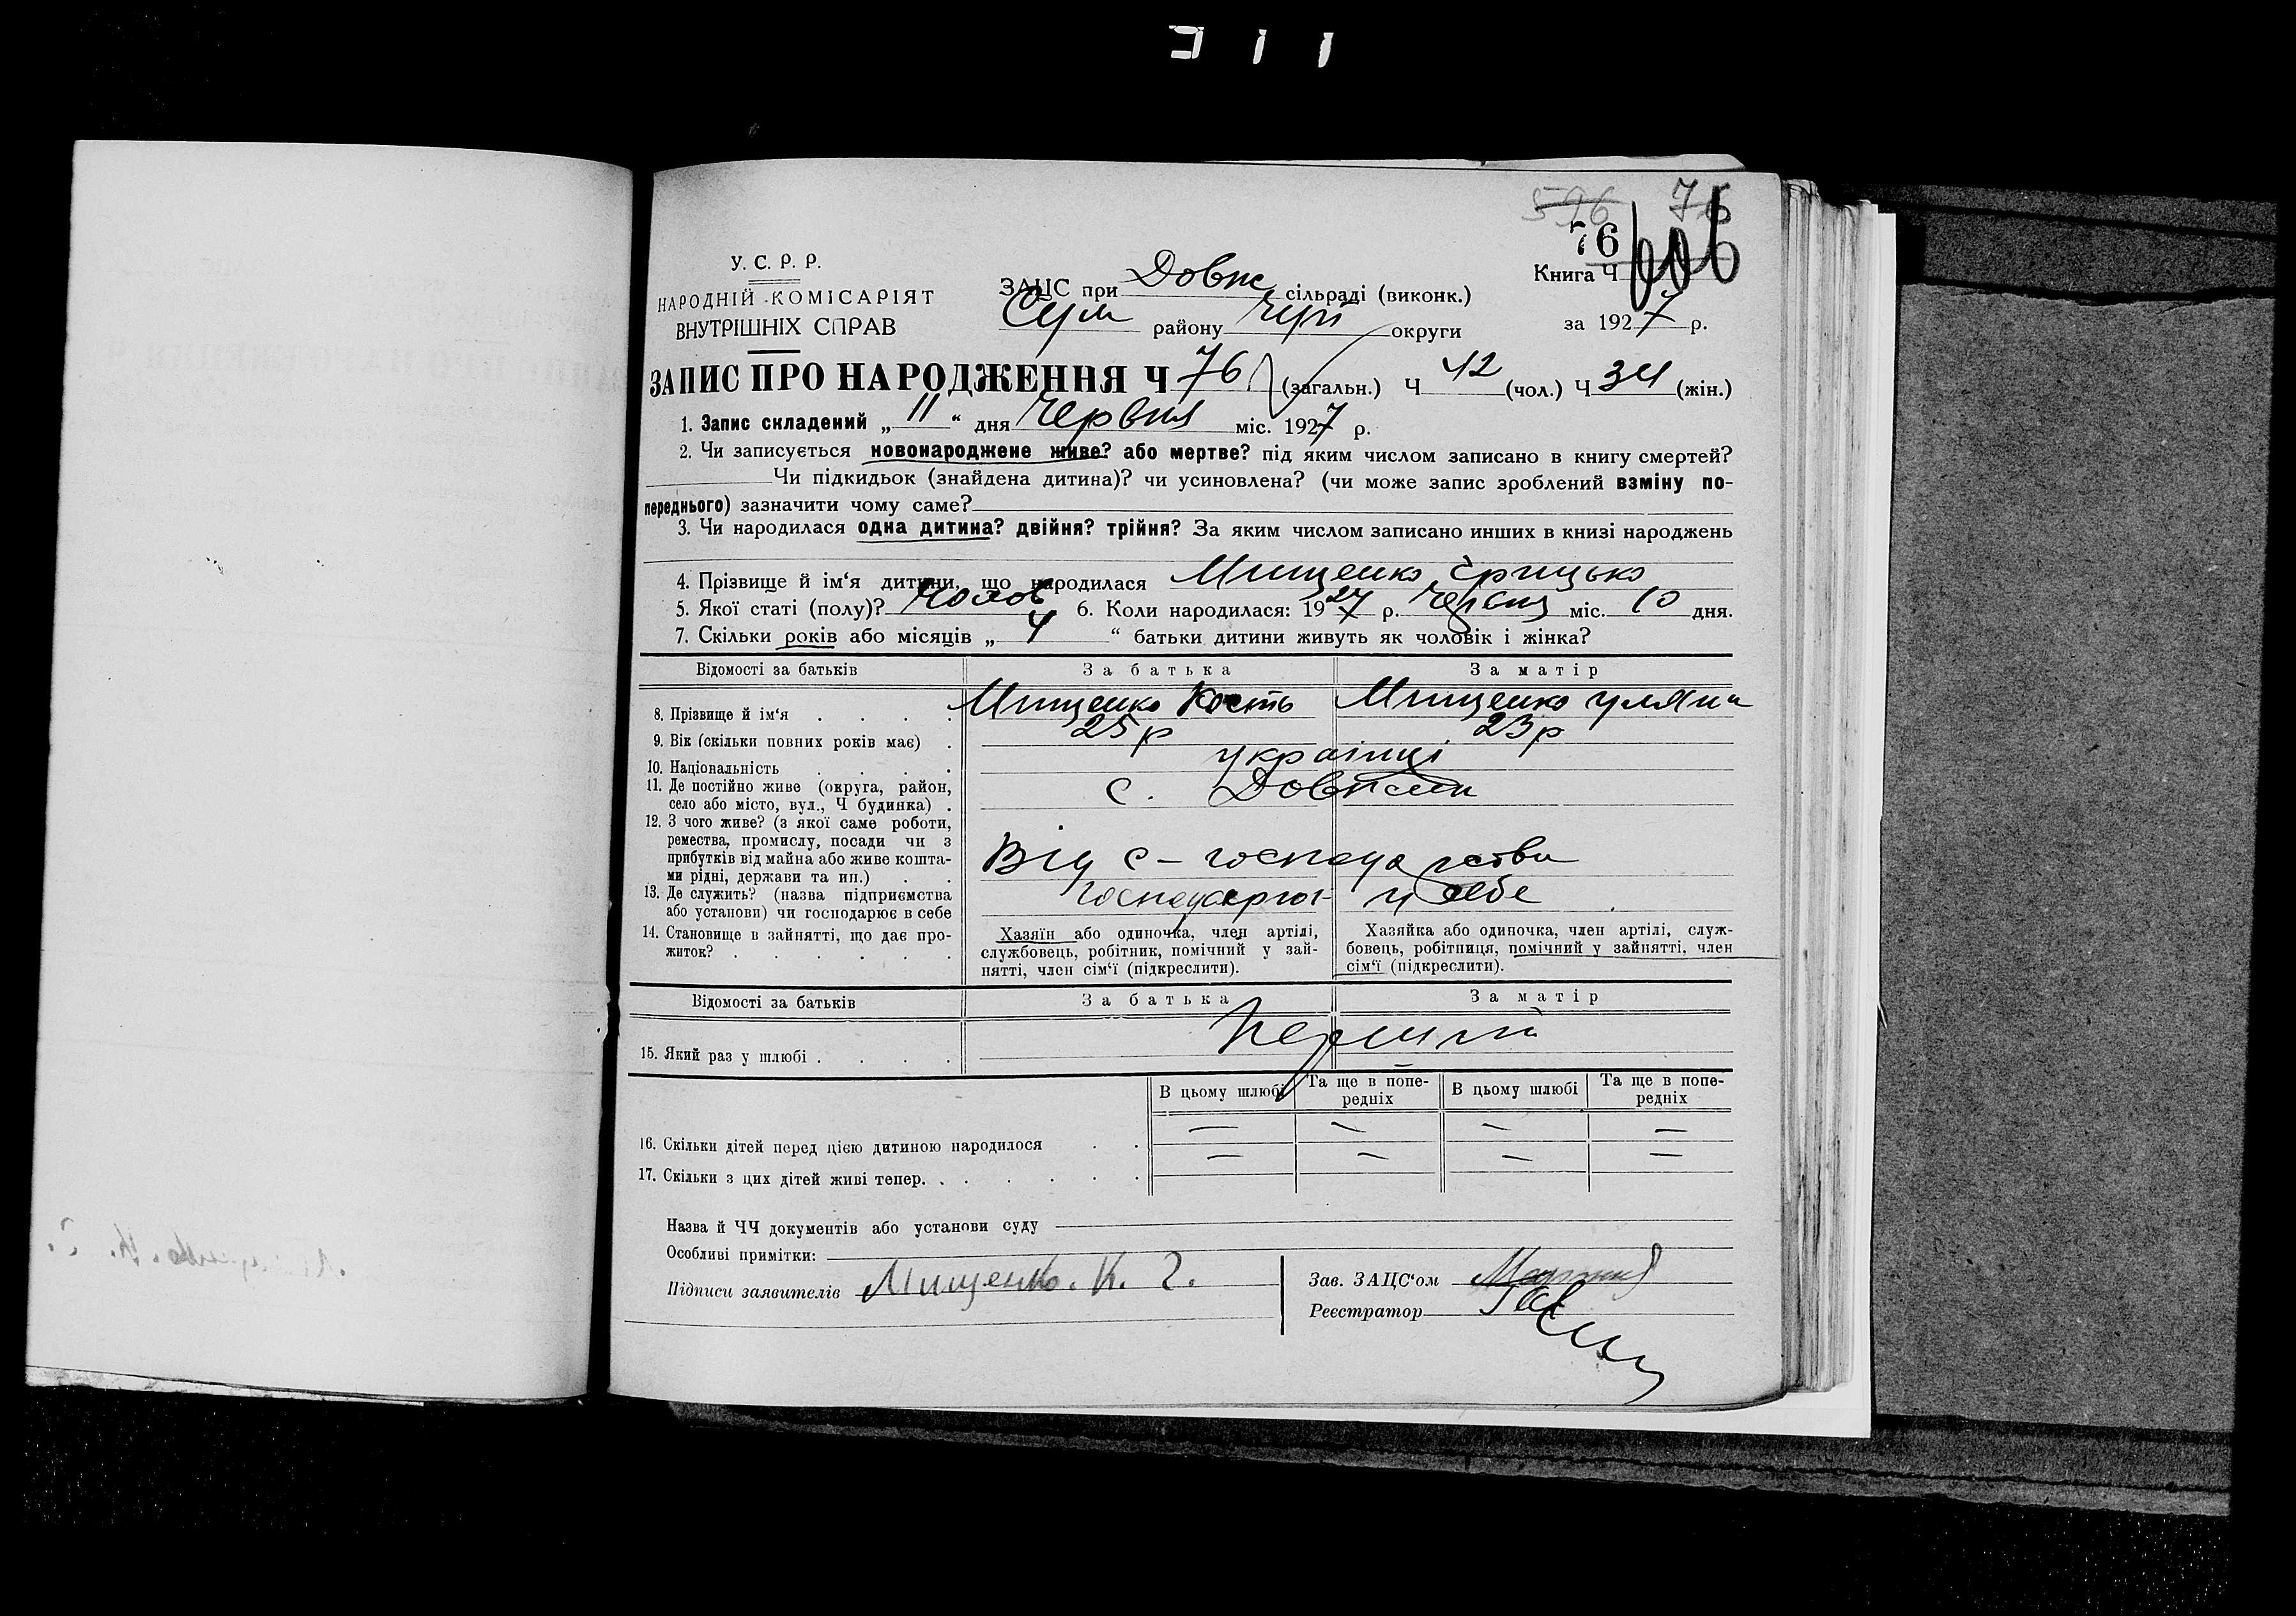 311
596 76
76 606
У. С. Р. Р.
НАРОДНІЙ КОМІСАРІЯТ
ВНУТРІШНІХ СПРАВ
ЗАЦС при Довж. сільраді (виконк.)
Сум району округи
Книга Ч
за 1927 р.
ЗАПИС ПРО НАРОДЖЕННЯ Ч 76 (загальн.) Ч 42 (чол.) Ч 34 (жін.)
1. Запис складений „ 11 “ дня Червня міс. 1927 р.
2. Чи записується новонароджене живе? або мертве? під яким числом записано в книгу смертей?
Чи підкидьок (знайдена дитина)? чи усиновлена? (чи може запис зроблений взміну по-
переднього) зазначити чому саме?
3. Чи народилася одна дитина? двійня? трійня? За яким числом записано инших в книзі народжень
4. Прізвище й ім‘я дитини, що народилася Мищенко Грицько
5. Якої статі (полу)? Чолов 6. Коли народилася: 1927 р. Червня міс. 10 дня.
7. Скільки років або місяців „ 4 “ батьки дитини живуть як чоловік і жінка?
Відомості за батьків За батька За матір
8. Прізвище й ім‘я . . . . Мищенко Кость Мищенко Уляна
9. Вік (скільки повних років має) . 25 р 23 р
10. Національність . . . . українці
11. Де постійно живе (округа, район,
село або місто, вул., Ч будинка) . с.
12. З чого живе? (з якої саме роботи,
ремества, промислу, посади чи з
прибутків від майна або живе кошта-
ми рідні, держави та ин.) . . Від с-господарства
13. Де служить? (назва підприємства
або установи) чи господарює в себе у себе
14. Становище в зайнятті, що дає про-
житок? . . . . . .
Хазяїн або одиночка, член артілі,
службовець, робітник, помічний у зай-
нятті, член сім‘ї (підкреслити).
Хазяйка або одиночка, член артілі, служ-
бовець, робітниця, помічний у зайнятті, член
сім‘ї (підкреслити).
Відомості за батьків За батька За матір
15. Який раз у шлюбі . . . . Перший
В цьому шлюбі Та ще в попе-
редніх В цьому шлюбі Та ще в попе-
редніх
16. Скільки дітей перед цією дитиною народилося . . — — — —
17. Скільки з цих дітей живі тепер. . . . . . . — — — —
Назва й ЧЧ документів або установи суду
Особливі примітки:
Підписи заявителів Мищенко. К. Г.
Зав. ЗАЦС‘ом
Реєстратор